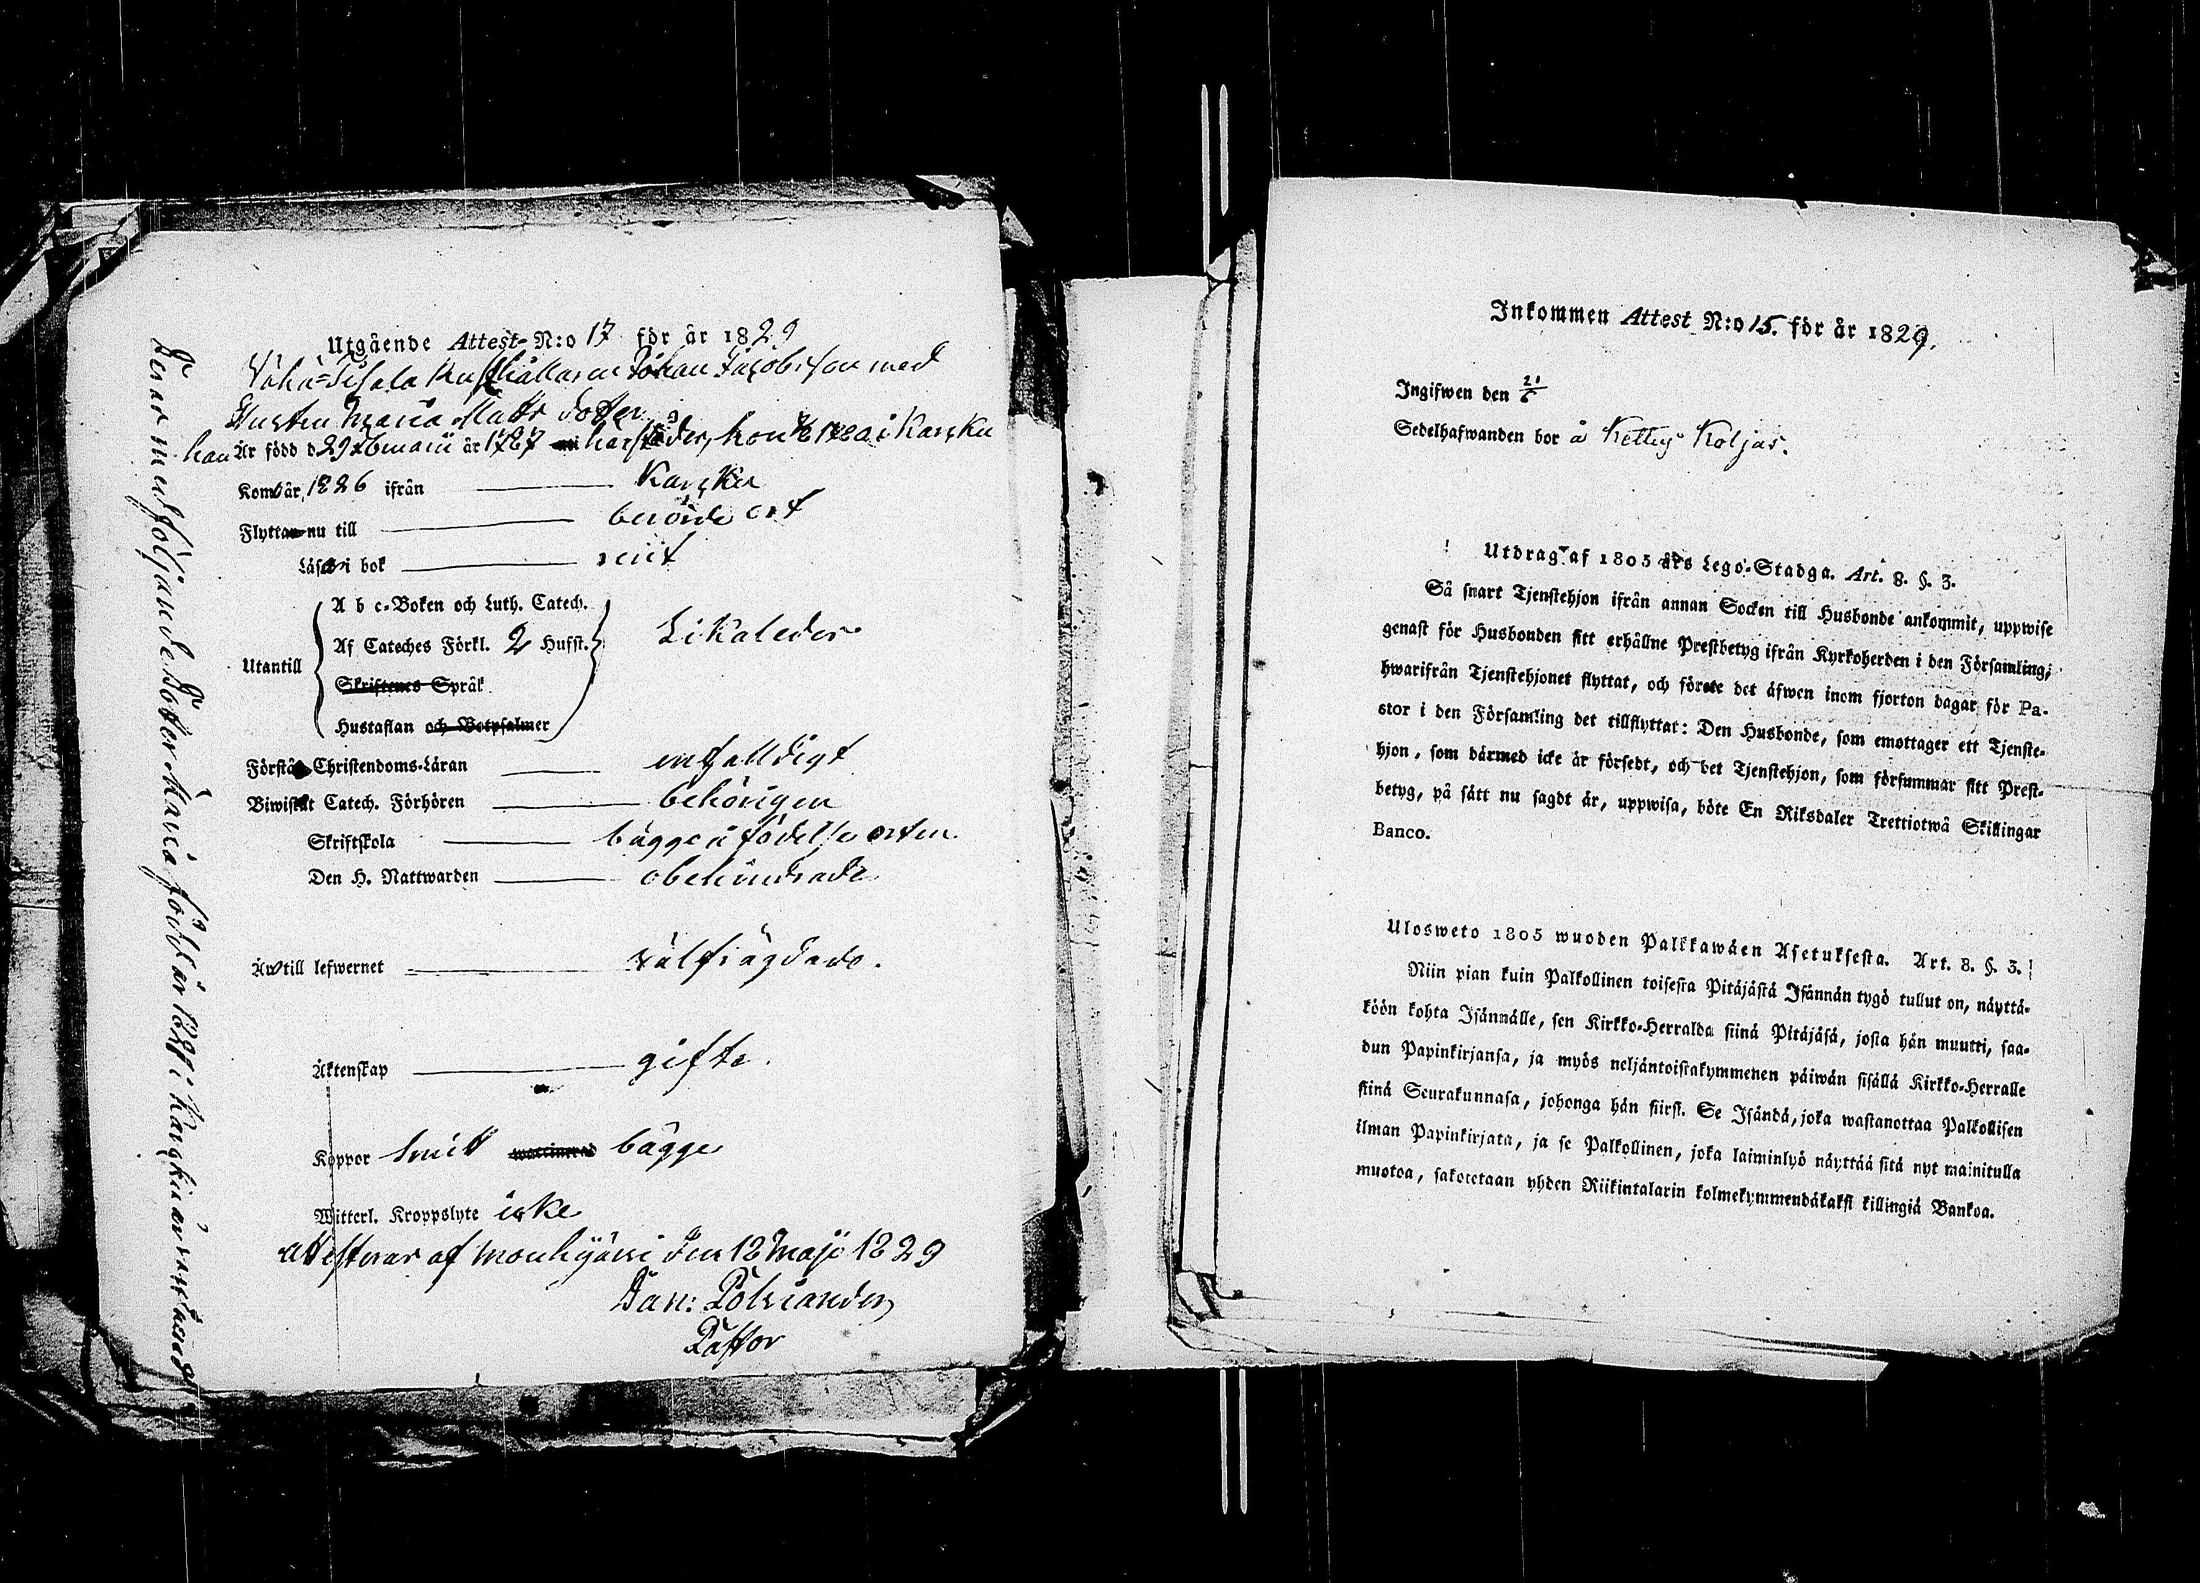 Utgående Attest N:o 17 för år 1829
Johan Jacobsson med
Hustru Maria Matts dotter
han Är född d 29 är 1787 hon i Karkku
Kom år 1826 ifrån Karkku
Flyttar nu till berörde ort
Läsa i bok
Utantill
A b c-Boken och Luth. Catech.
Af Cateches Förkl. 2 Hufst. Likaledes
Skriftenes Språk
Hustaflan och Botpsalmer
Förstå Christendoms-Läran enfalldigt
Biwistat Catech. Förhören behörigen
Skriftskola bägge i födelse orten
Den H. Nattwarden obehindrade
Är till lefwernet välfrägdade.
Äktenskap gifte.
Koppor haft vaccinerad bägge
Witterl. Kroppslyte icke
Attesterar af Mouhijärvi den 18 Maji 1829
Dan: Polviander
Pastor
Deras medföljande dotter Maria född år i Karkku är
Inkommen Attest N:o 15. för år 1829.
Ingifwen den 21/6
Sedelhafwanden bor å Koljas.
Utdrag af 1805 års Lego-Stadga. Art. 8. §. 3.
Så snart Tjenstehjon ifrån annan Socken till Husbonde ankommit, uppwise
genast för Husbonden sitt erhållne Prestbetyg ifrån Kyrkoherden i den Församling,
hwarifrån Tjenstehjonet flyttat, och förete det äfwen inom fjorton dagar för Pa-
stor i den Församling det tillflyttat: Den Husbonde, som emottager ett Tjenste-
hjon, som därmed icke är försedt, och det Tjenstehjon, som försummar sitt Prest-
betyg, på sätt nu sagdt är, uppwisa, böte En Riksdaler Trettiotwå Skillingar
Banco.
Ulosweto 1805 wuoden Palkkawäen Asetuksesta. Art. 8. §. 3.
Niin pian kuin Palkollinen toisesta Pitäjästä Isännän tygö tullut on, näyttä-
köön kohta Isännälle, sen Kirkko-Herralda siinä Pitäjäsä, josta hän muutti, saa-
dun Papinkirjansa, ja myös neljäntoistakymmenen päiwän sisällä Kirkko-Herralle
siinä Seurakunnasa, johonga hän siirst. Se Isändä, joka wastanottaa Palkollisen
ilman Papinkirjata, ja se Palkollinen, joka laiminlyö näyttää sitä nyt mainitulla
muotoa, sakotetaan yhden Riikintalarin kolmekymmendäkaksi killingiä Bankoa.